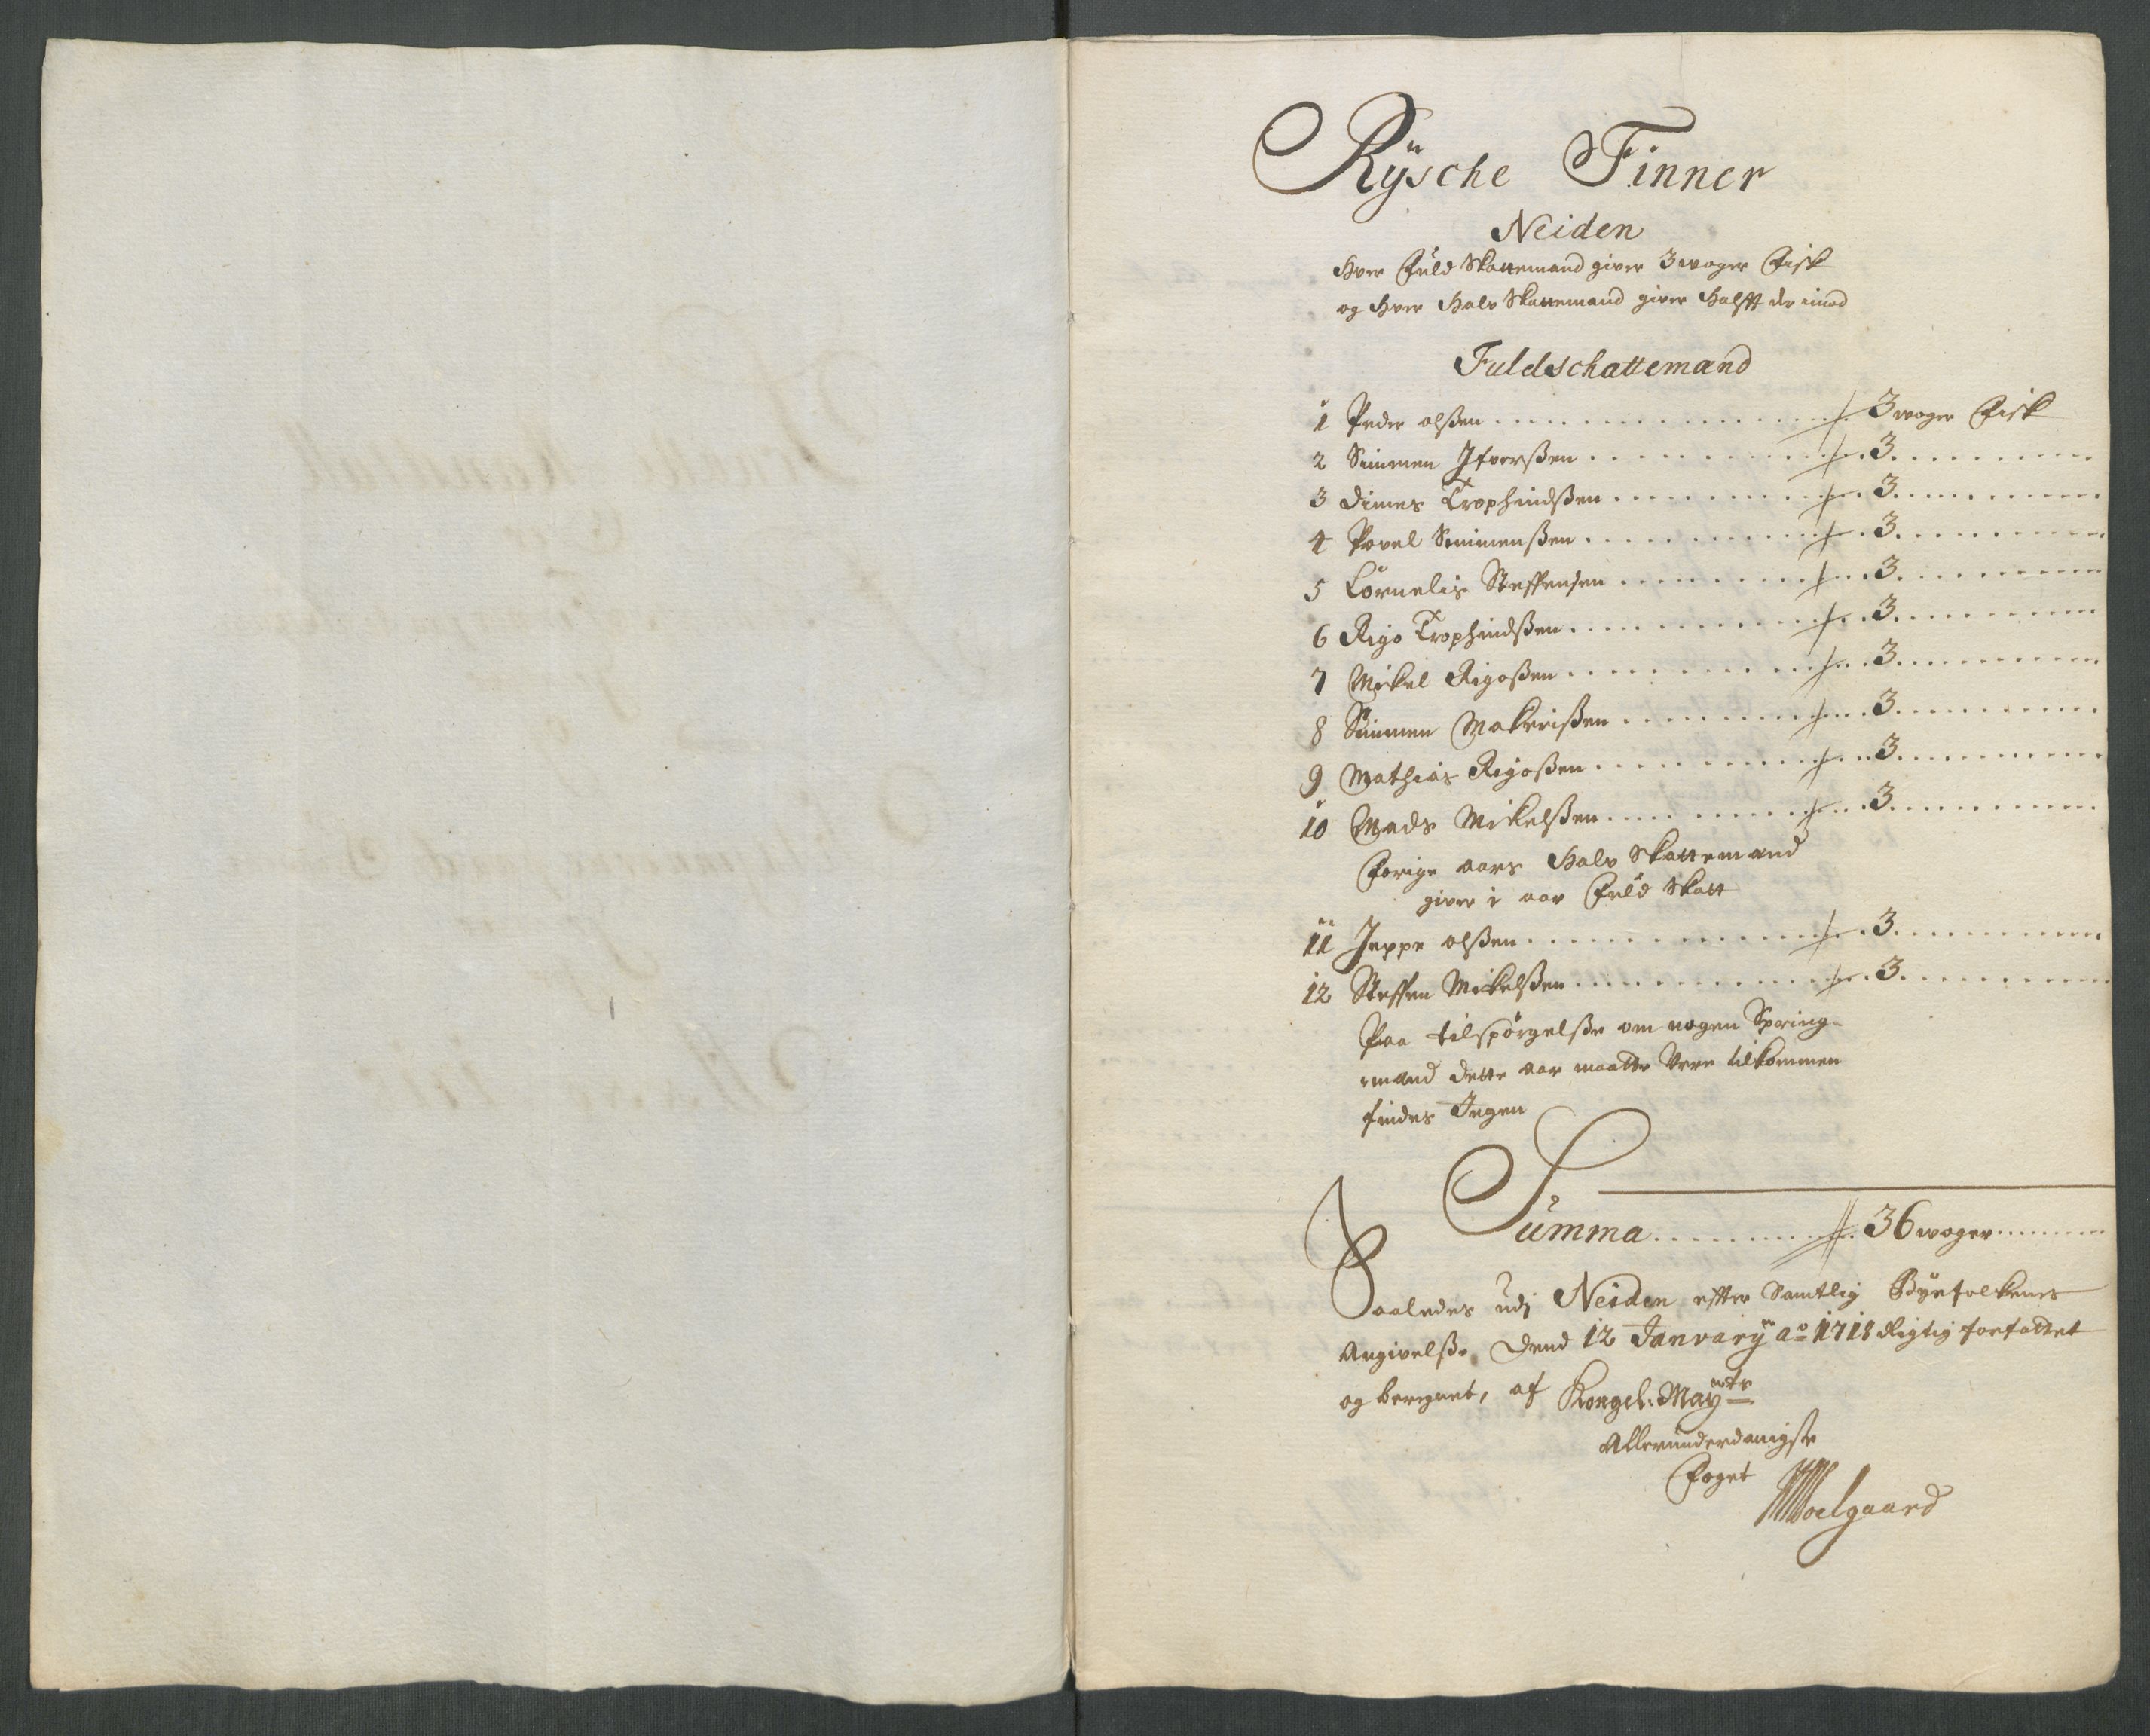 Rÿsche Finner
Neiden
Hver Fuld Skattemand giver 3 woger Fisk
og Hver Halv Skattemand giver Halfft der imod
Fuldschattemænd
1 Peder olßen 3 woger Fisk
2 Simmen Ifverßen 3
3 Dimes Trophindßen 3
4 Povel Simmenßen 3
5 Cornelis Steffensen 3
6 Rigo Trophindßen 3
7 Mickel Rigoßen 3
8 Simmen Makerißen 3
9 Mathias Rigoßen 3
10 Mads Mickelßen 3
Forige aars Halv Skattemænd
giver i aar Fuld Skatt
11 Jeppe olßen 3
12 Steffen Mickelßen 3
Paa tilspørgelße om nogen Spring-
mænd dette aar maatte Vere tilkommen
findes Ingen
Summa 36 woger
Saaledes udj Neiden effter samtlig Bÿefolkenes
Angivelße, Dend 12 Januarÿ ao 1718 Rigtig forfattet
og beregnet, af Kongel: Mayts
Allerunderdanigste
Foget Woelgaard